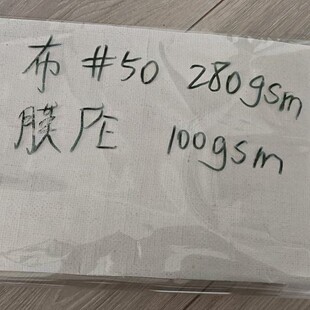 布 #50 280gsm
膜 PE 100gsm